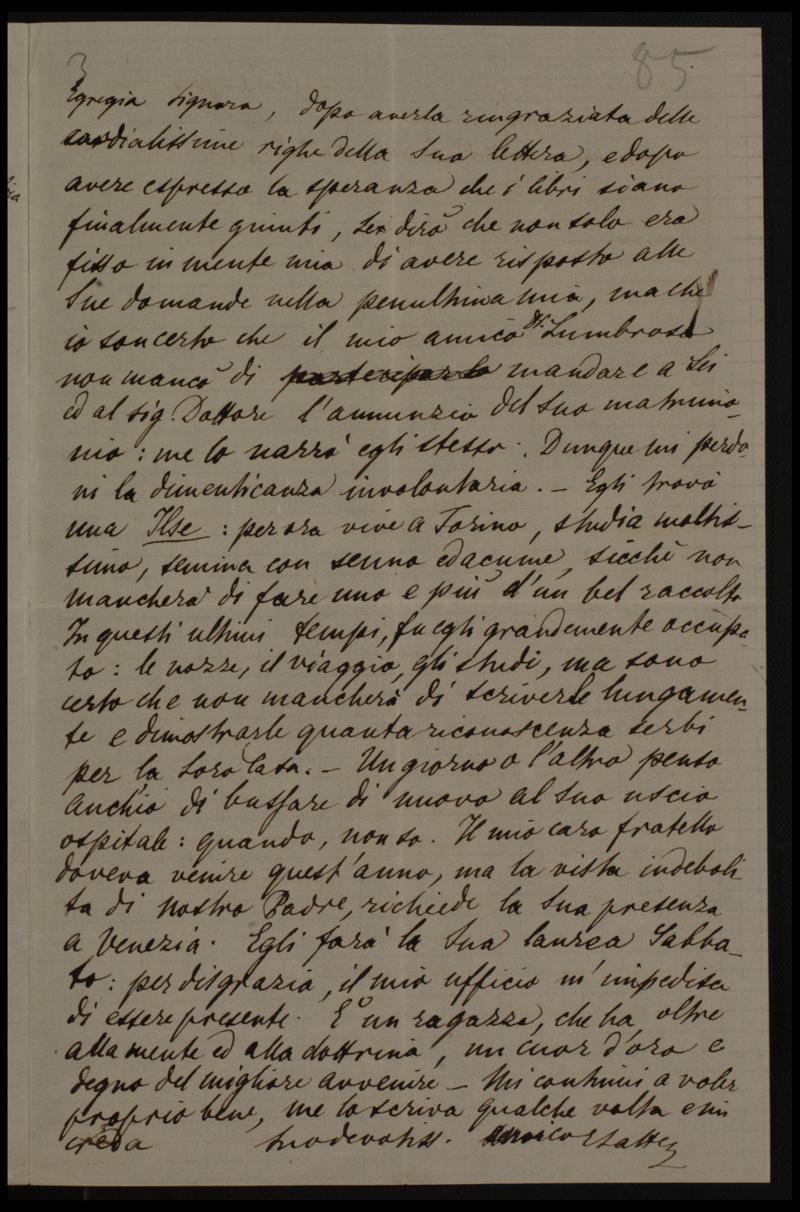 85
Egregia Signora, dopo averla ringraziata delle
cordialissime righe della Sua lettera, e dopo
avere espresso la speranza che i libri siano
finalmente giunti, Le dirò che non solo era
fisso in mente mia di avere risposto alle
Sue domande nella penultima mia, ma che
io son certo che il mio amico Lumbroso
non mancò di parteciparlo mandare a Lei
ed al Sig. Dottore l'annunzio del suo matrimo-
nio: me lo narrò egli stesso. Dunque mi perdo-
ni la dimenticanza involontaria. – Egli trovò
una Ilse: per ora vive a Torino, studia moltis-
simo, semina con senno ed acume, sicchè non
mancherà di fare uno e più d'un bel raccolto
In questi ultimi tempi, fu egli grandemente occupa-
to: le nozze, il viaggio, gli studi, ma sono
certo che non mancherà di scriverle lungamen-
te e dimostrarle quanta riconoscenza serbi
per la Loro Casa. – Un giorno o l'altro penso
anch'io di bussare di nuovo al Suo uscio
ospitale: quando, non so. Il mio caro fratello
doveva venire quest'anno, ma la vista indeboli
ta di nostro Padre, richiede la Sua presenza
a Venezia. Egli farà la Sua laurea Sabba-
to: per disgrazia, il mio ufficio m'impedisce
di essere presente. È un ragazzo, che ha, oltre
alla mente ed alla dottrina, un cuor d'oro e
degno del migliore avvenire – Mi continui a voler
proprio bene, me lo scriva qualche volta e mi
creda Suo devotiss. amico